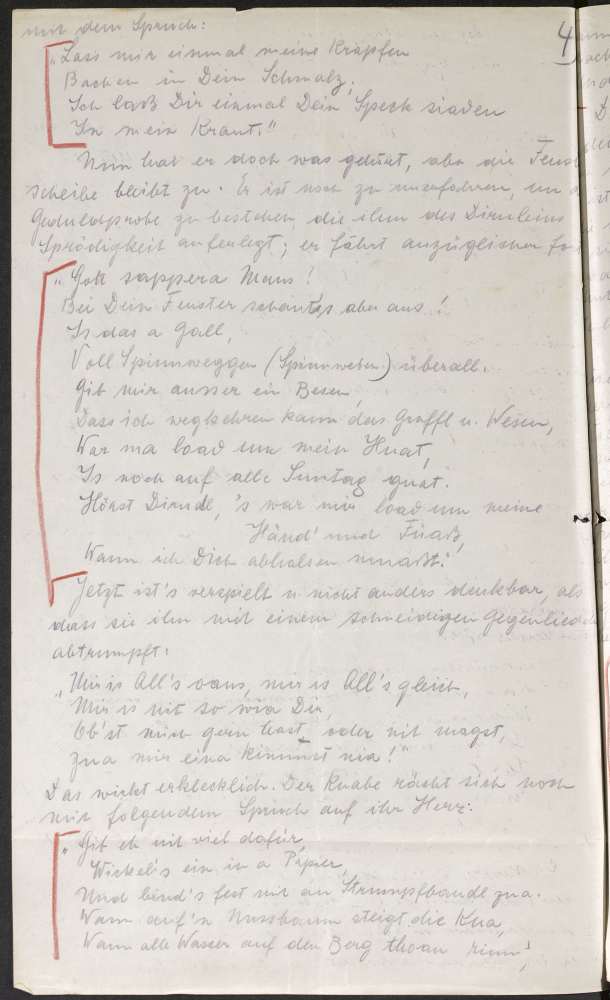 mit dem Spruch:
4
„Lass mir einmal meine Krapfen
Backen in Dein Schmalz,
Ich lass Dir einmal Dein Speck sieden
In mein Kraut."
Nun hat er doch was gehört, aber die Fenst
scheibe bleibt zu. Er ist noch zu unerfahren, um
Geduldsprobe zu bestehen, die ihm des Dirnleins
Sprödigkeit auferlegt; er fährt anzüglicher
„Gott sappera Mans!
Bei Dein Fenster schaut's aber aus!
Is das a Gall,
Voll Spinnweggen (Spinnweben) überall.
Gib mir ausser ein Besen,
Dass ich wegkehren kann das Graffl u. Wesen,
War ma load um mein Huat,
Is noch auf alle Sunntag guat.
Hörst Dirndl, 's war mir load um meine
Händ' und Füaß,
Wann ich Dich abhalsen muaßt."
Jetzt ist's verspielt u. nicht anders denkbar, als
dass sie ihn mit einem schneidigen Gegenlied
abtrumpft:
„Mir is All's oans, mir is All's gleich,
Mir is nit so wia Dir,
Ob'st mich gern hast oder nit magst,
zua mir eina kimmst nia!"
Das wirkt erklecklich. Der Knabe rächt sich noch
mit folgendem Spruch auf ihr Herz:
„Gib eh nit viel dafür,
Wickel's ein in a Papier,
Und bind's fest mit an Strumpfbandl zua.
Wann auf'n Nussbaum steigt die Kua,
Wann alle Wasser auf den Berg thoan rinn',